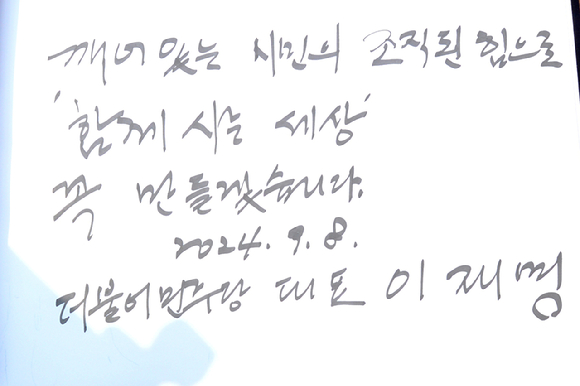 깨어있는 시민의 조직된 힘으로
'함께 사는 세상'
꼭 만들겠습니다.
2024. 9. 8.
더불어민주당 대표 이재명